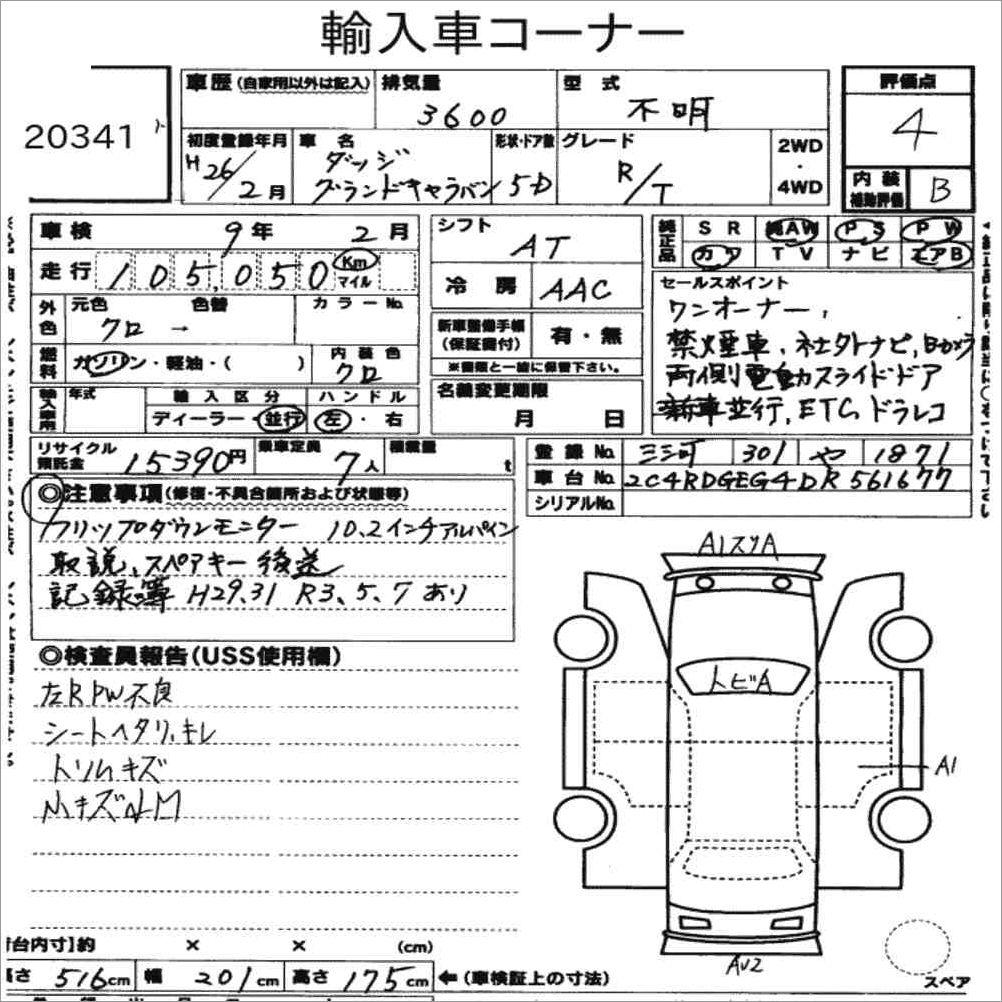 輸入車コーナー
20341
車歴(自家用以外は記入) 排気量 3600 型式 不明 評価点 4
初度登録年月 H26/2月 車名 ダッジ グランドキャラバン 形状・ドア数 5D グレード R/T 2WD・4WD 内装補助評価 B
車検 9年 2月 シフト AT 純正品 SR 純AW PS PW
走行 105,050 Km マイル カワ TV ナビ エアB
冷房 AAC セールスポイント
外色 元色 クロ → 色替 カラーNo. ワンオーナー,
新車整備手帳(保証書付) 有・無 禁煙車、社外ナビ,Bカメラ
燃料 ガソリン・軽油・( ) 内装色 クロ ※書類と一緒に保管下さい。 両側電動スライドドア
輸入車用 年式 輸入区分 ディーラー・並行 ハンドル 左・右 名義変更期限 月 日 新車並行,ETC,ドラレコ
リサイクル預託金 15390円 乗車定員 7人 積載量 t 登録No. 301 や 1871
車台No. 2C4RDGEG4DR561677
シリアルNo.
◎注意事項(修復・不具合箇所および状態等)
フリップダウンモニター 10.2インチアルパイン
取説、スペアキー後送
記録簿 H29.31 R3、5、7あり
◎検査員報告(USS使用欄)
左R PW不良
シートヘタリ、キレ
トリムキズ
小キズ
A1スリA
トビA
A1
AU2
スペア
荷台内寸】約 × × (cm)
長さ 516cm 幅 201cm 高さ 175cm ←(車検証上の寸法)